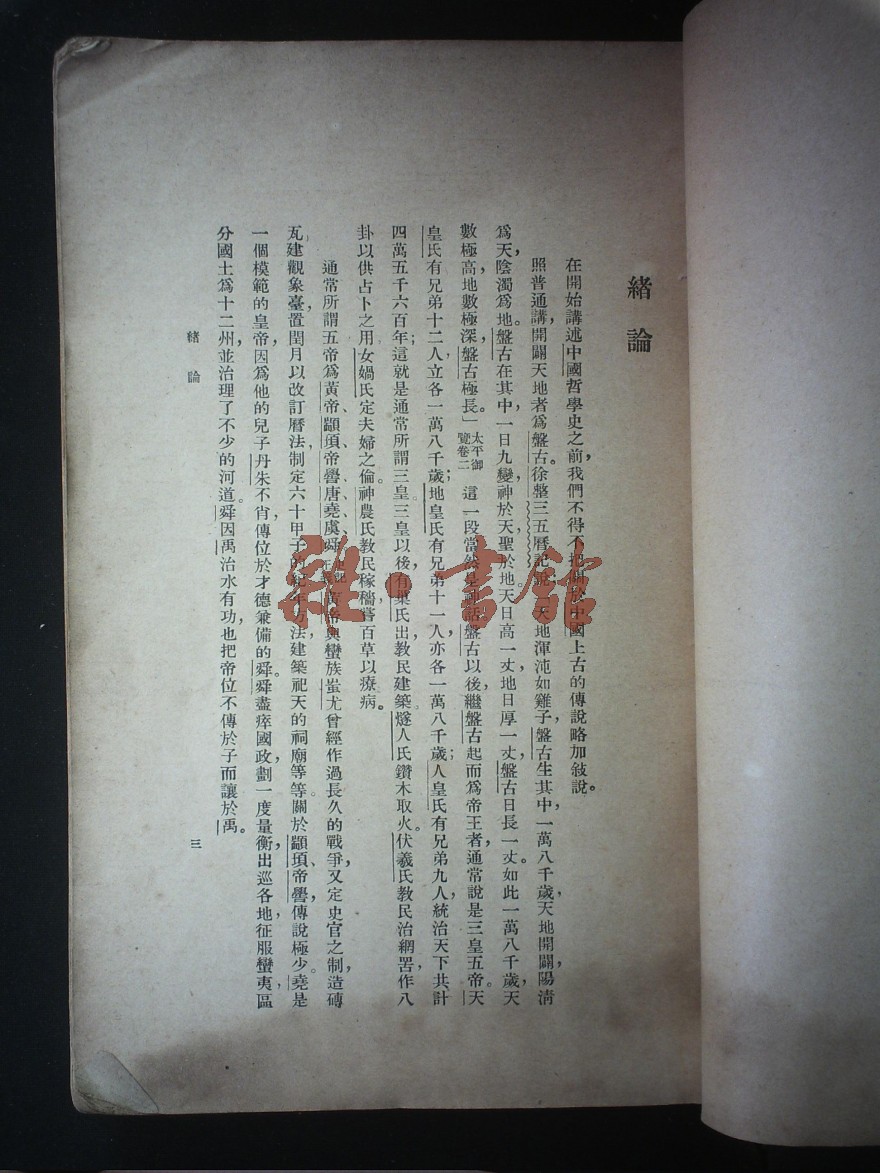 緒論
在開始講述中國哲學史之前，我們不得不把關於中國上古的傳說略加敍說。
照普通講，開闢天地者為盤古。徐整三五曆記說：「天地渾沌如雞子，盤古生其中，一萬八千歲，天地開闢，陽清
為天，陰濁為地。盤古在其中，一日九變，神於天，聖於地。天日高一丈，地日厚一丈，盤古日長一丈。如此一萬八千歲，天
數極高，地數極深，盤古極長。」太平御覽卷二 這一段當然是神話。盤古以後，繼盤古起而為帝王者，通常說是三皇五帝。天
皇氏有兄弟十二人，立各一萬八千歲；地皇氏有兄弟十一人，亦各一萬八千歲；人皇氏有兄弟九人，統治天下共計
四萬五千六百年；這就是通常所謂三皇。三皇以後，有巢氏出，教民建築。燧人氏鑽木取火。伏羲氏教民治網罟，作八
卦以供占卜之用。女媧氏定夫婦之倫。神農氏教民稼穡，嘗百草以療病。
通常所謂五帝為黃帝、顓頊、帝嚳、唐堯、虞舜。史記正義 黃帝與蠻族蚩尤曾經作過長久的戰爭，又定史官之制，造磚
瓦，建觀象臺，置閏月以改訂曆法，制定六十甲子的紀年方法，建築祀天的祠廟等等。關於顓頊、帝嚳，傳說極少。堯是
一個模範的皇帝，因為他的兒子丹朱不肖，傳位於才德兼備的舜。舜盡瘁國政，劃一度量衡，出巡各地，征服蠻夷，區
分國土為十二州，並治理了不少的河道。舜因禹治水有功，也把帝位不傳於子而讓於禹。
緒論
三
雜·書館